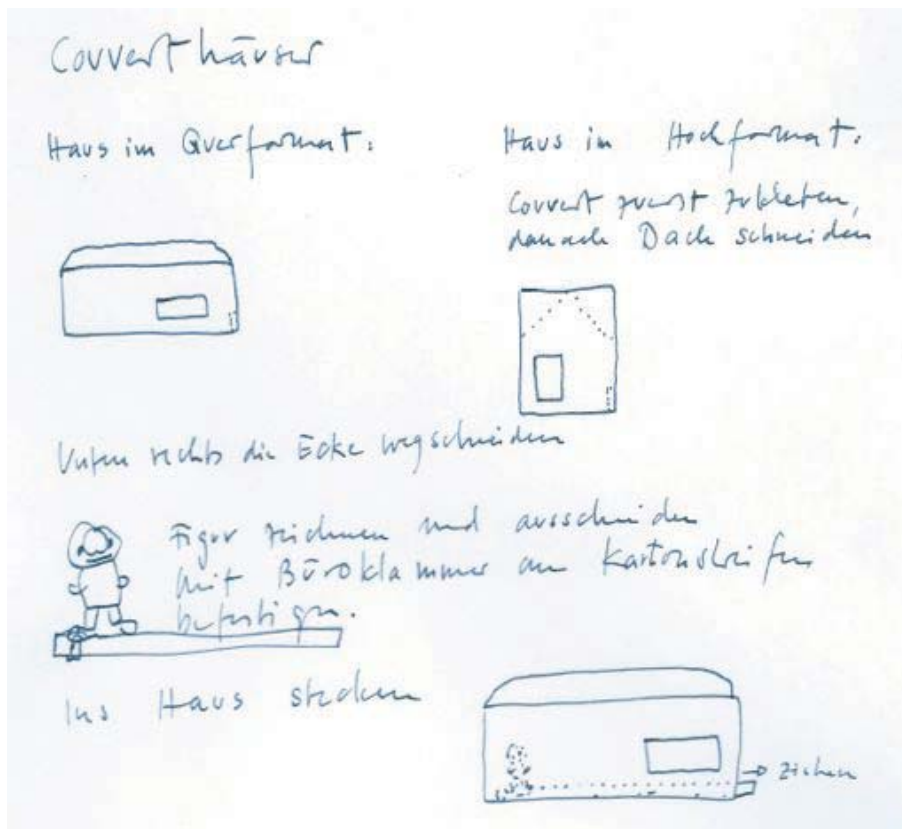 Couverthäuser
Haus im Querformat:
Haus im Hochformat:
Couvert zuerst zukleben,
danach Dach schneiden
Unten rechts die Ecke wegschneiden
Figur zeichnen und ausschneiden
mit Büroklammer am Kartonstreifen
befestigen.
Ins Haus stecken
ziehen